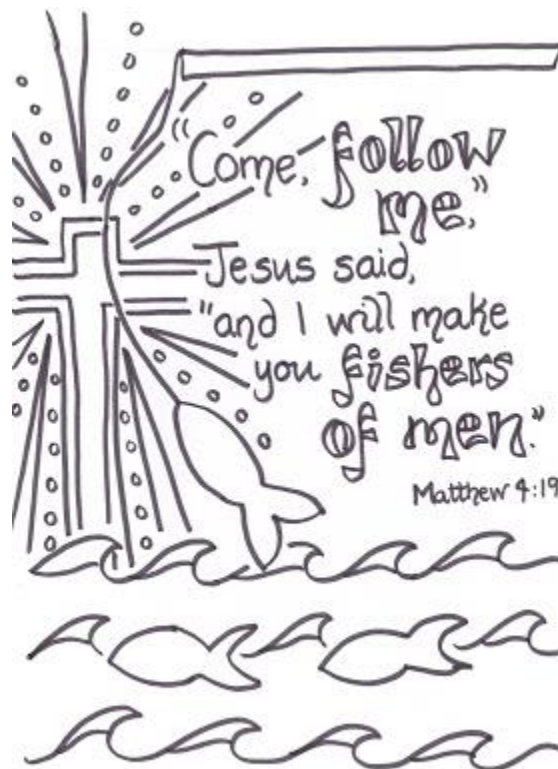 "Come, follow
me,"
Jesus said,
"and I will make
you fishers
of men."
Matthew 4:19